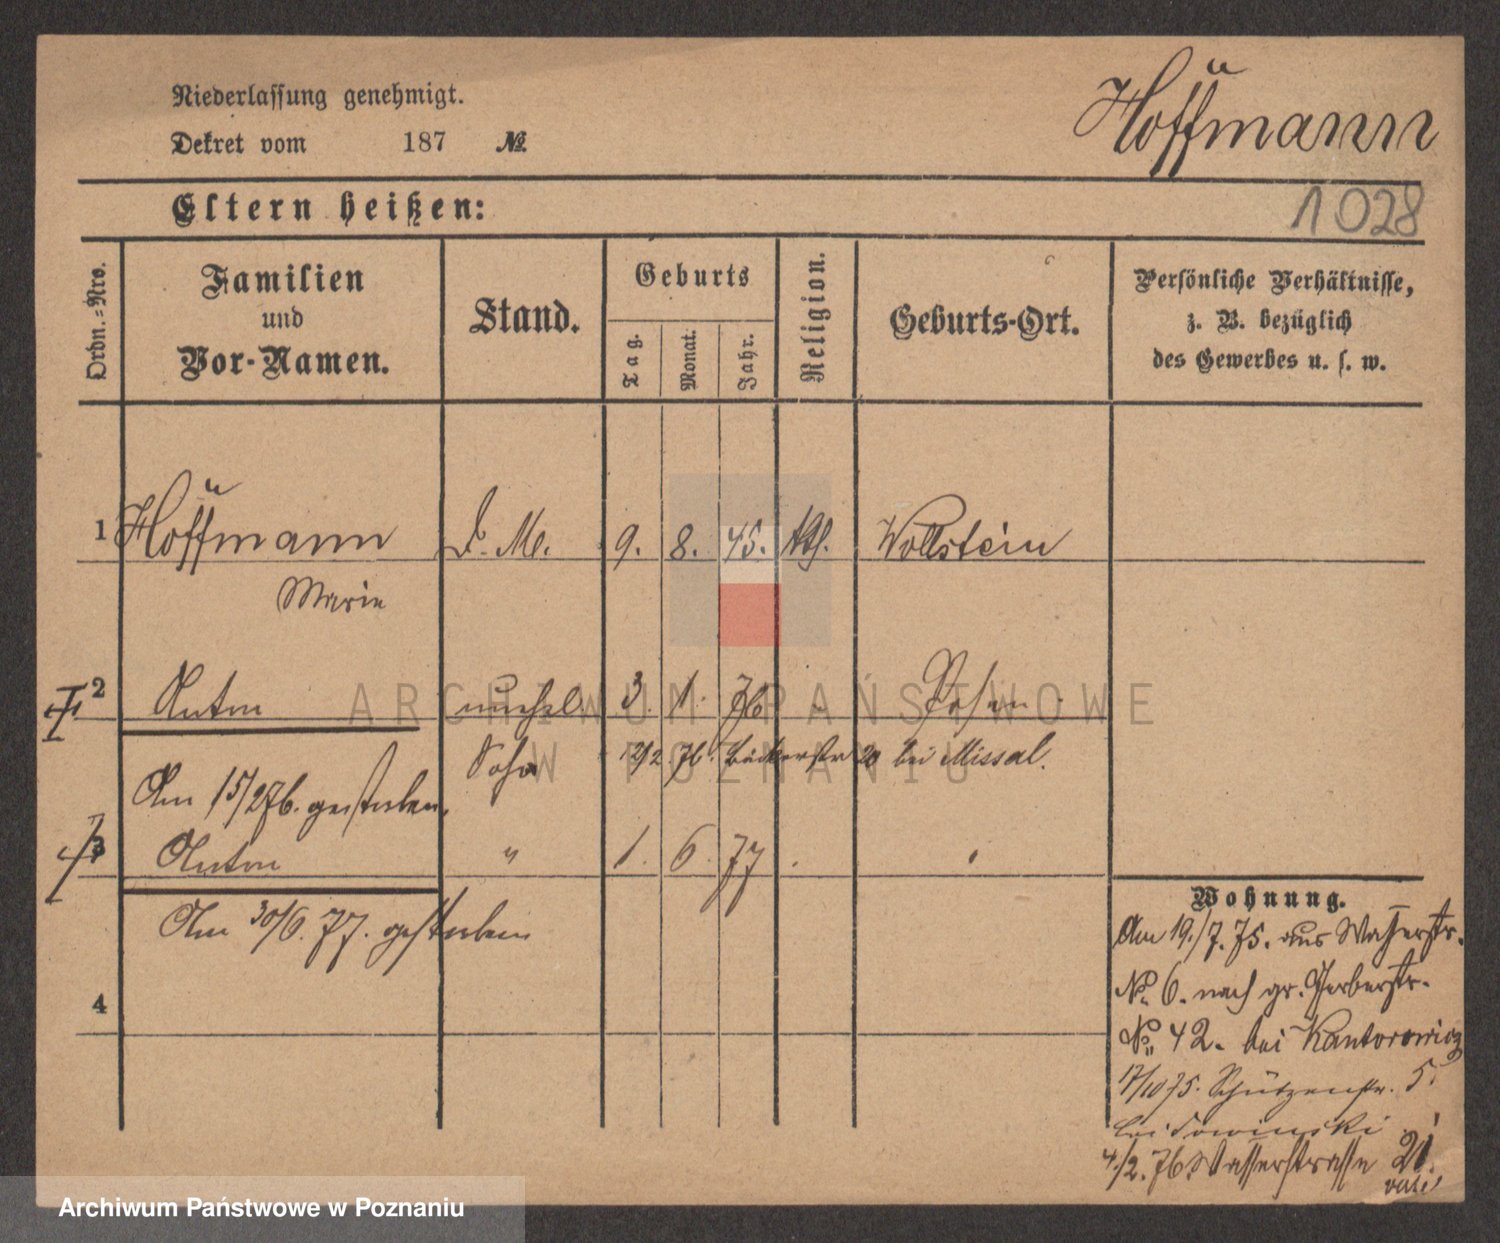 Niederlassung genehmigt.
Dekret vom 187 №
Höffmann
1028
Eltern heißen:
Ordn.-Nro.
Familien
und
Vor-Namen.
Stand.
Geburts
Tag.
Monat.
Jahr.
Religion.
Geburts-Ort.
Persönliche Verhältnisse,
z. B. bezüglich
des Gewerbes u. s. w.
1 Höffmann D. M. 9. 8. 45. Wollstein
Marie
2 Anton unehel. 3. 1. 76 Posen
Sohn 12/2. 76. Bäckerstr 20 bei Missal.
Am 15/2 76. gestorben.
3 Anton " 1. 6. 77
Am 30/6. 77. gestorben
4
Wohnung.
Am 19./7. 75. aus Wasserstr.
No. 6. nach gr. Gerberstr.
No. 42. bei Kantorowicz
17/10 75. Schützenstr. 5.
bei
4./2. 76 Wasserstrasse 21.
ARCHIWUM PAŃSTWOWE
W POZNANIU
Archiwum Państwowe w Poznaniu